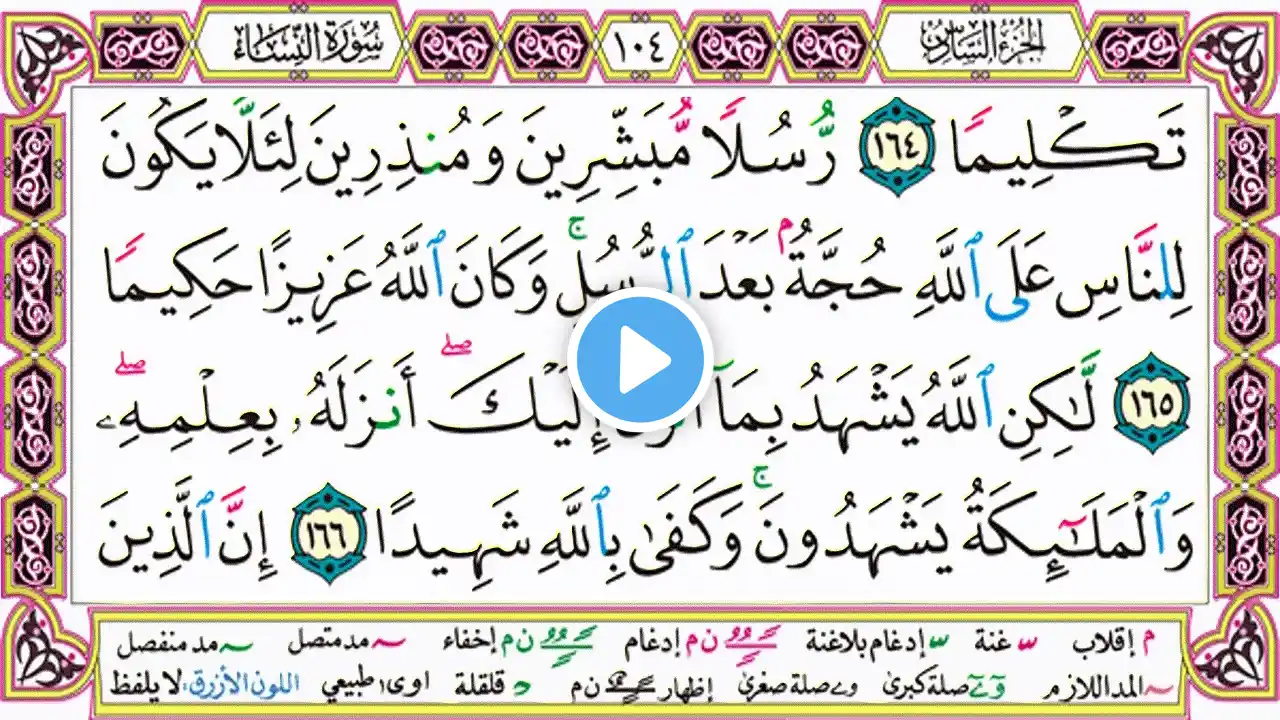 سُورَةُ النِّسَاءِ ١٠٤ الجُزْءُ السَّادِسُ
تَكْلِيمًا ١٦٤ رُّسُلًا مُّبَشِّرِينَ وَمُنذِرِينَ لِئَلَّا يَكُونَ
لِلنَّاسِ عَلَى ٱللَّهِ حُجَّةٌۢ بَعْدَ ٱلرُّسُلِۚ وَكَانَ ٱللَّهُ عَزِيزًا حَكِيمًا
١٦٥ لَّٰكِنِ ٱللَّهُ يَشْهَدُ بِمَآ إِلَيْكَۖ أَنزَلَهُۥ بِعِلْمِهِۦۖ
وَٱلْمَلَـٰٓئِكَةُ يَشْهَدُونَۚ وَكَفَىٰ بِٱللَّهِ شَهِيدًا ١٦٦ إِنَّ ٱلَّذِينَ
م إقلاب غنة إدغام بلاغنة ن م إدغام ن م إخفاء مد متصل مد منفصل
المد اللازم صلة كبرى صلة صغرى ن م إظهار د قلقلة اوى طبيعي اللون الأزرق، لا يلفظ